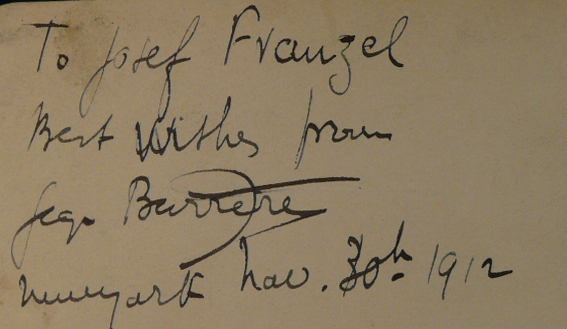 To Josef Franzel
Best Wishes from
Geo Barrère
Newyork Nov. 30th 1912